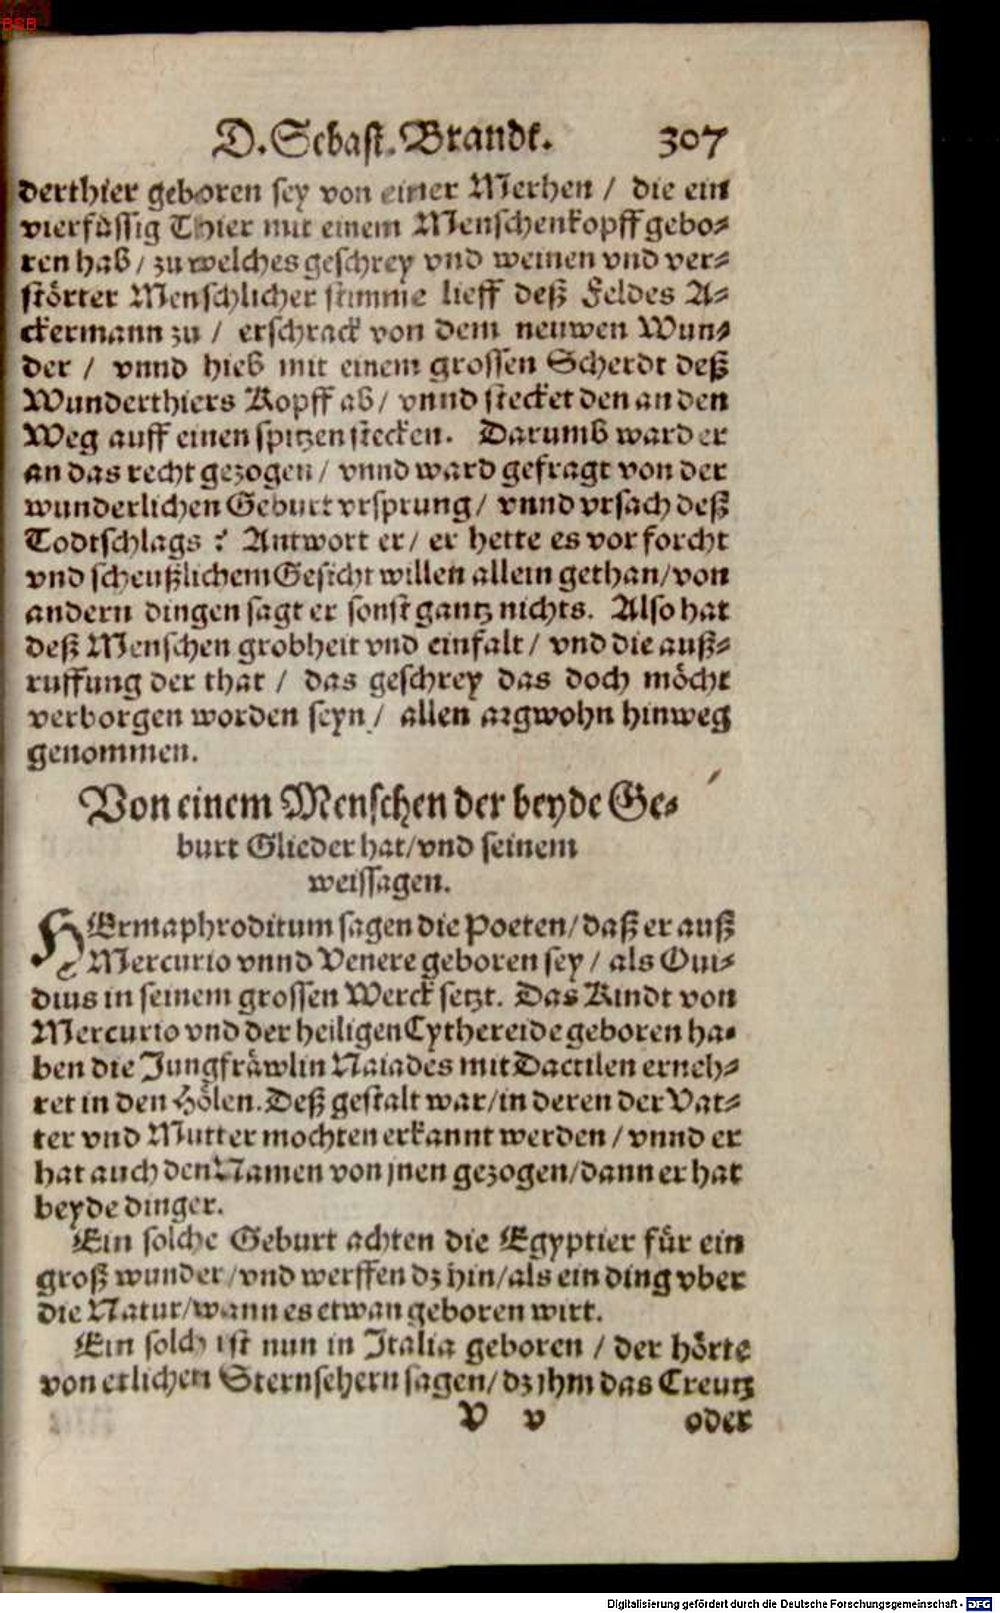 BSB
D. Sebast. Brandt. 307
derthier geboren sey von einer Merhen / die ein
vierfüssig Thier mit einem Menschenkopff gebo⸗
ren hab / zu welches geschrey vnd weinen vnd ver⸗
störter Menschlicher stimme lieff deß Feldes A⸗
ckermann zu / erschrack von dem neuwen Wun⸗
der / vnnd hieb mit einem grossen Scherdt deß
Wunderthiers Kopff ab / vnnd stecket den an den
Weg auff einen spitzen stecken. Darumb ward er
an das recht gezogen / vnnd ward gefragt von der
wunderlichen Geburt vrsprung / vnnd vrsach deß
Todtschlags ? Antwort er / er hette es vor forcht
vnd scheußlichem Gesicht willen allein gethan / von
andern dingen sagt er sonst gantz nichts. Also hat
deß Menschen grobheit vnd einfalt / vnd die auß⸗
ruffung der that / das geschrey das doch möcht
verborgen worden seyn / allen argwohn hinweg
genommen.
Von einem Menschen der beyde Ge⸗
burt Glieder hat / vnd seinem
weissagen.
HErmaphroditum sagen die Poeten / daß er auß
Mercurio vnnd Venere geboren sey / als Oui⸗
dius in seinem grossen Werck setzt. Das Kindt von
Mercurio vnd der heiligen Cythereide geboren ha⸗
ben die Jungfräwlin Naiades mit Dactilen erneh⸗
ret in den Hölen. Deß gestalt war / in deren der Vat⸗
ter vnd Mutter mochten erkannt werden / vnnd er
hat auch den Namen von jnen gezogen / dann er hat
beyde dinger.
Ein solche Geburt achten die Egyptier für ein
groß wunder / vnd werffen dz hin / als ein ding vber
die Natur / wann es etwan geboren wirt.
Ein solch ist nun in Italia geboren / der hörte
von etlichen Sternsehern sagen / dz jhm das Creutz
V v oder
Digitalisierung gefördert durch die Deutsche Forschungsgemeinschaft - DFG